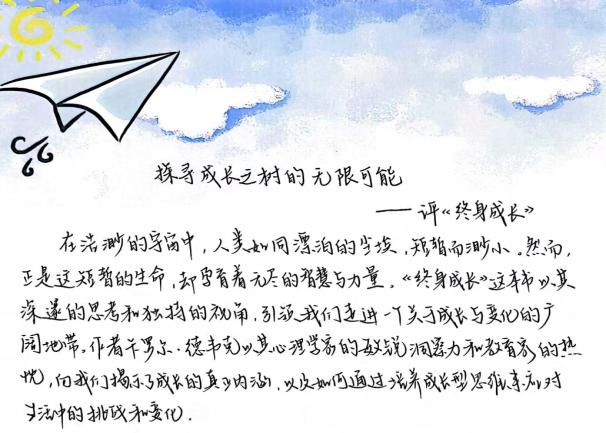 探寻成长之树的无限可能
——评《终身成长》
在浩渺的宇宙中，人类如同漂泊的尘埃，短暂而渺小。然而，
正是这短暂的生命，却孕育着无尽的智慧与力量。《终身成长》这本书以其
深邃的思考和独特的视角，引领我们走进一个关于成长与变化的广
阔地带。作者卡罗尔·德韦克以其心理学家的敏锐洞察力和教育家的热
忱，向我们揭示了成长的真正内涵，以及如何通过培养成长型思维来应对
生活中的挑战和变化.